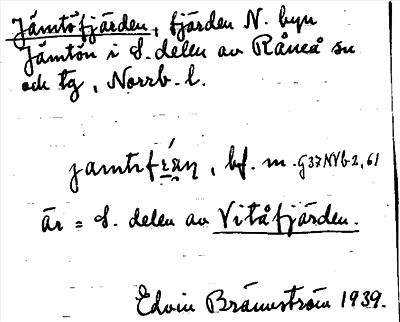 Jämtöfjärden, fjärden N. byn
Jämtön i S. delen av Råneå sn
och tg, Norrb. l.
bf. m. G37NVb2,61
är = S. delen av Vitåfjärden.
Edvin Brännström 1939.